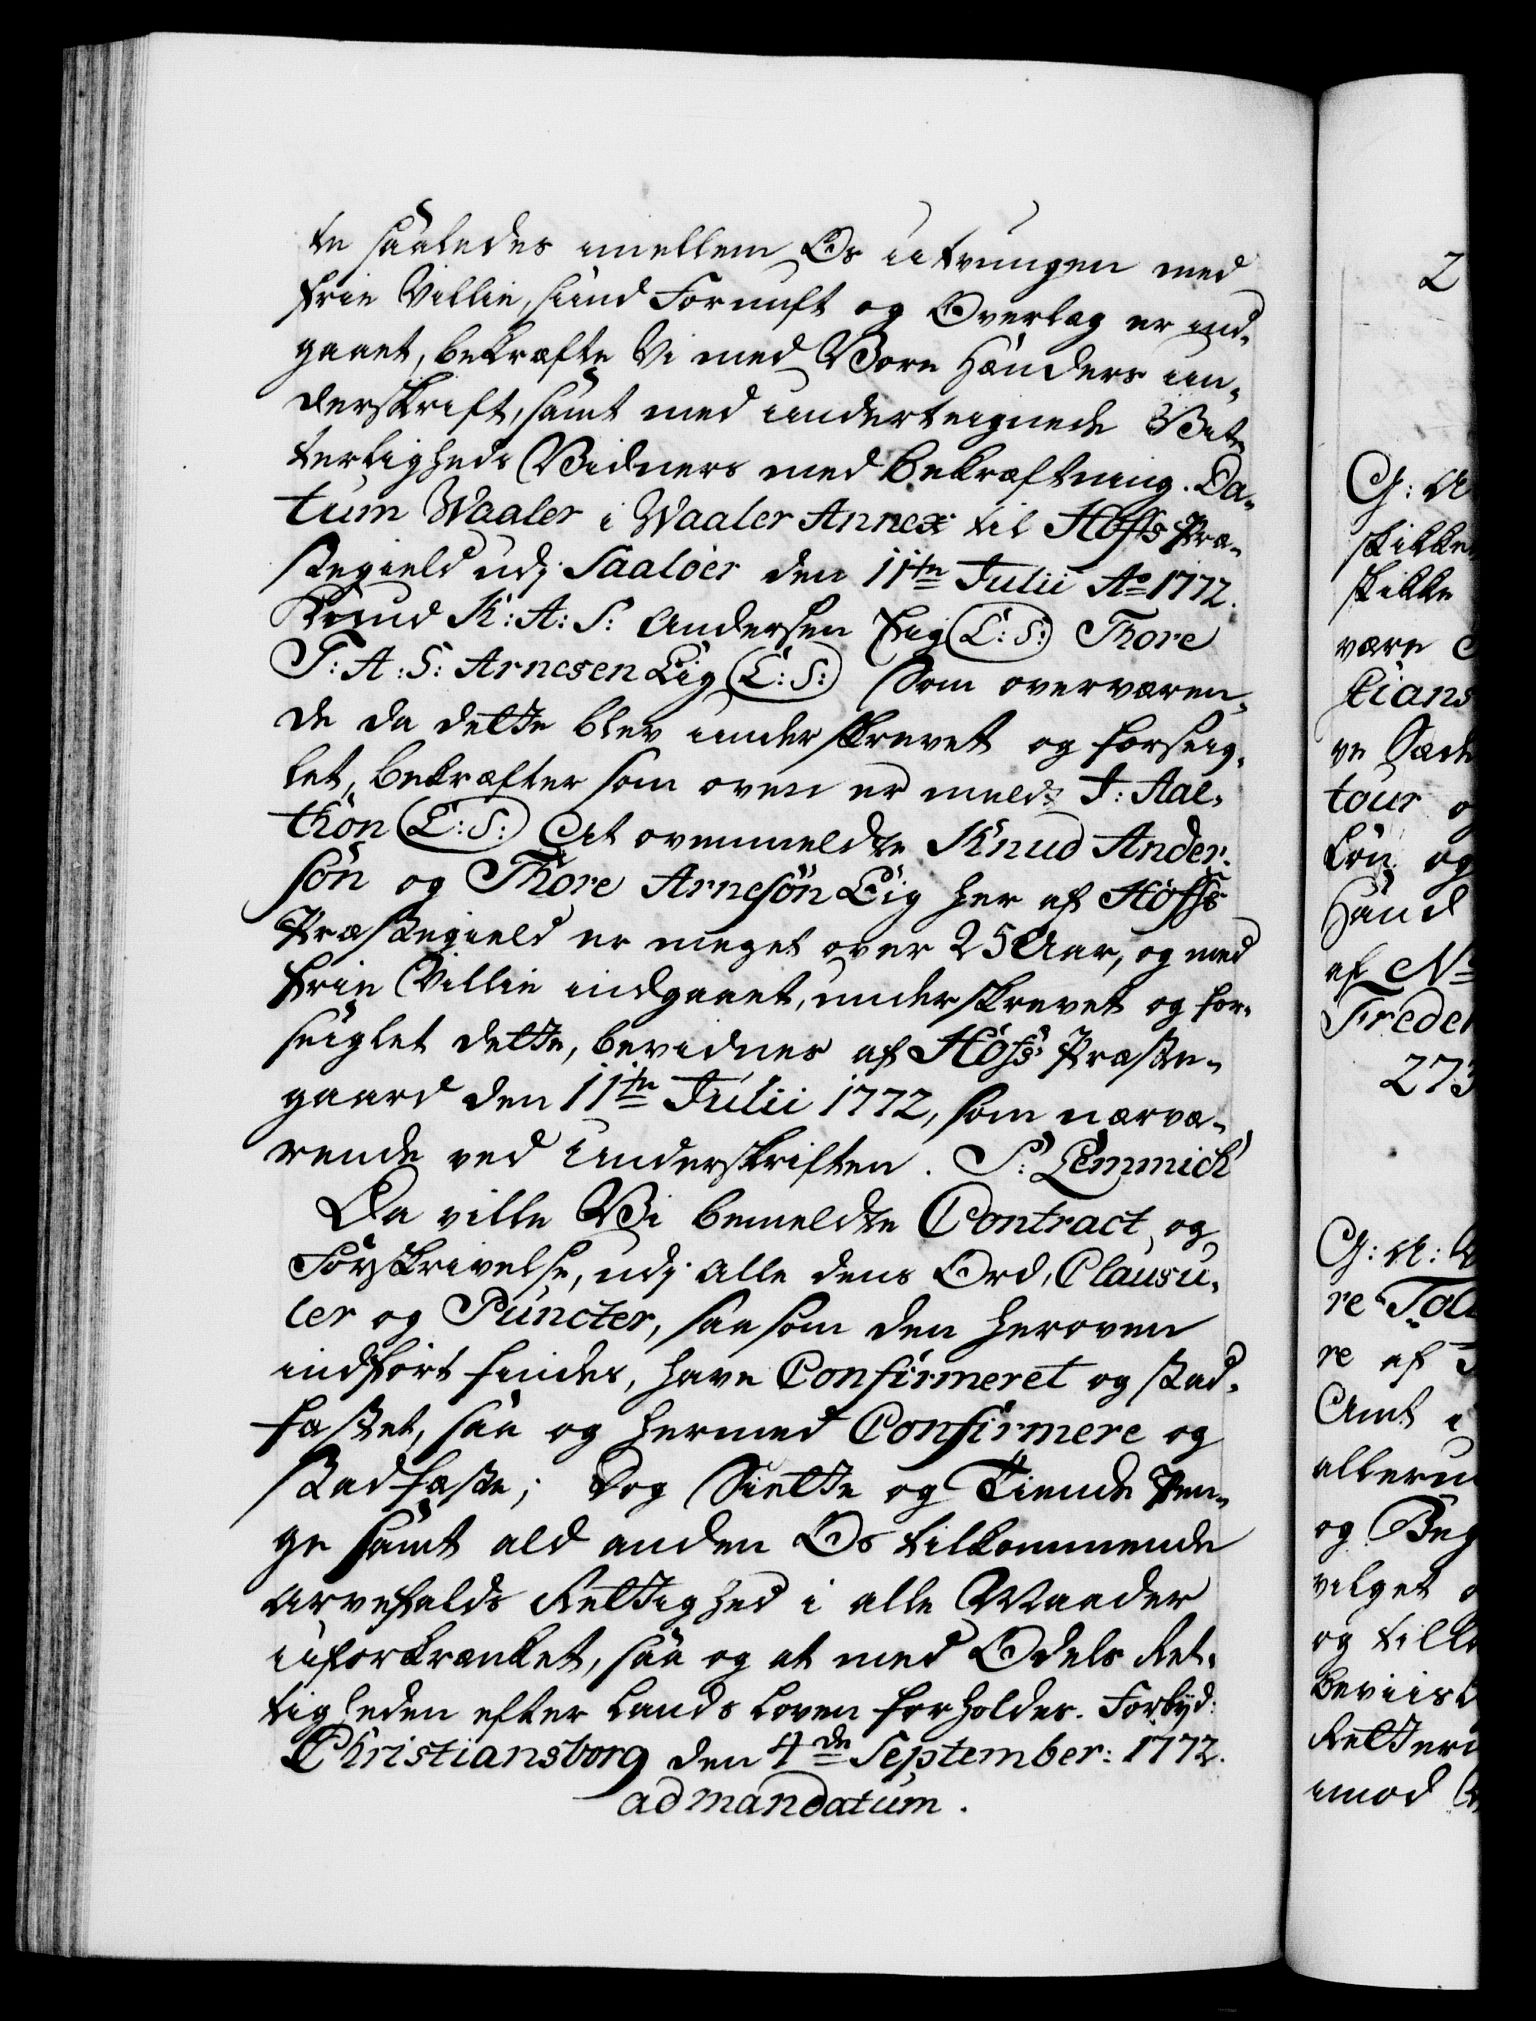 te saaledes imellem Os utvungen med
frie Villie, sund Fornuft og Overlæg er ind-
gaaet, bekræfte Vi med Vore Hænders un-
derskrift, samt med underteignede Vit-
terligheds Vidners med bekræftning. Da-
tum Waaler i Waaler Annex til Hoffs Præ-
stegield udj Saaløer den 11te Julii Ao 1772.
Knud K: A: S: Andersen Lig (L: S:) Thore
T: A: S: Arnesen Lig (L: S:) Som overværen-
de da dette blev underskrevet og forseig-
let, bekræfter som oven er meldt J: Aal-
thon (L: S:) At ovenmeldte Knud Ander-
søn og Thore Arnesøn Lig her af Hoffs
Præstegield er meget over 25 Aar, og med
frie Villie indgaaet, underskrevet og for-
seiglet dette, bevidnes af Hofs Præste-
gaard den 11te Julii 1772, som nærvæ-
rende ved underskriften. S: Lemmich
Da ville Vi bemeldte Contract og
Forskrivelse, udj alle dens Ord, Clausu-
ler og Puncter, saasom den heroven
indført findes, have Confirmeret og stad-
fæstet, saa og hermed Confirmere og
stadfæste; Dog Siette og Tiende Pen-
ge samt ald anden Os tilkommende
Arvefalds Rettighed i alle Maader
uforkrænket, saa og at med Odels Ret-
tigheden efter Lands Loven forholdes. Forbyd:
Christiansborg den 4de September: 1772.
ad mandatum.
2
G: A
skikke
skikke
være
tians
ve Sæde
tour o
Løn og
Haand
af N
Freder
273
G: A:
re Tol
re af
Amt
allerun
og Beg
vilget
og till
beviisl
Rettere
imod